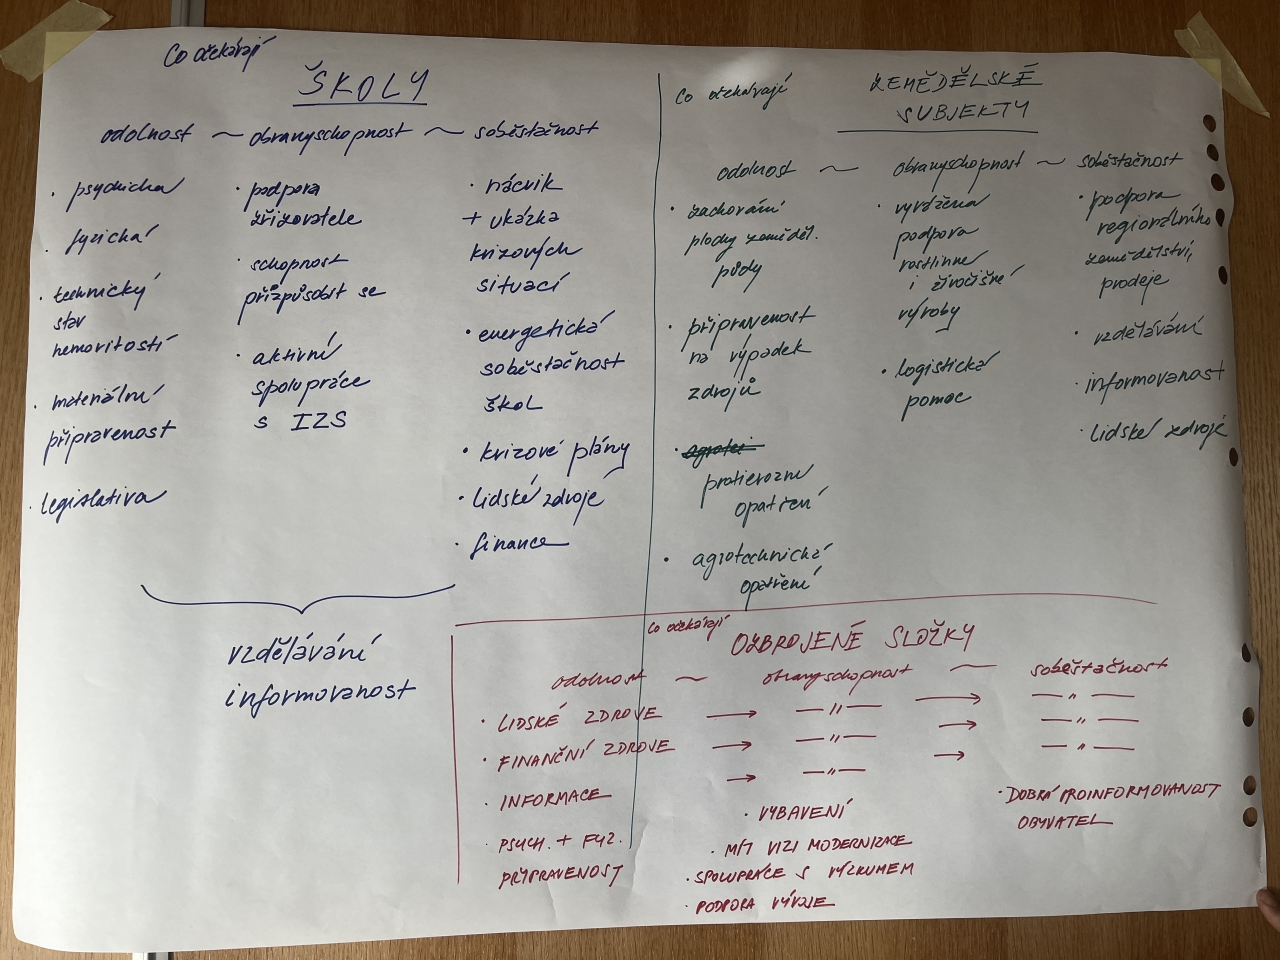 Co očekávají
ŠKOLY
odolnost ~ obranyschopnost ~ soběstačnost
• psychická
• fyzická
• technický
stav
nemovitostí
• materiální
připravenost
• legislativa
• podpora
zřizovatele
• schopnost
přizpůsobit se
• aktivní
spolupráce
s IZS
• nácvik
+ ukázka
krizových
situací
• energetická
soběstačnost
škol
• krizové plány
• lidské zdroje
• finance
vzdělávání
informovanost
Co očekávají
ZEMĚDĚLSKÉ
SUBJEKTY
odolnost ~ obranyschopnost ~ soběstačnost
• zachování
plochy zeměděl.
půdy
• připravenost
na výpadek
zdrojů
• protierozní
opatření
• agrotechnická
opatření
• vyvážená
podpora
rostlinné
i živočišné
výroby
• logistická
pomoc
• podpora
regionálního
zemědělství,
prodeje
• vzdělávání
• informovanost
• lidské zdroje
Co očekávají
OZBROJENÉ SLOŽKY
odolnost ~ obranyschopnost ~ soběstačnost
• LIDSKÉ ZDROJE → — 〃 — → — 〃 —
• FINANČNÍ ZDROJE → — 〃 — → — 〃 —
• INFORMACE → — 〃 — → — 〃 —
• PSYCH. + FYZ.
PŘIPRAVENOST
• VYBAVENÍ
• MÍT VIZI MODERNIZACE
• SPOLUPRÁCE S VÝZKUMEM
• PODPORA VÝVOJE
• DOBRÁ PROINFORMOVANOST
OBYVATEL